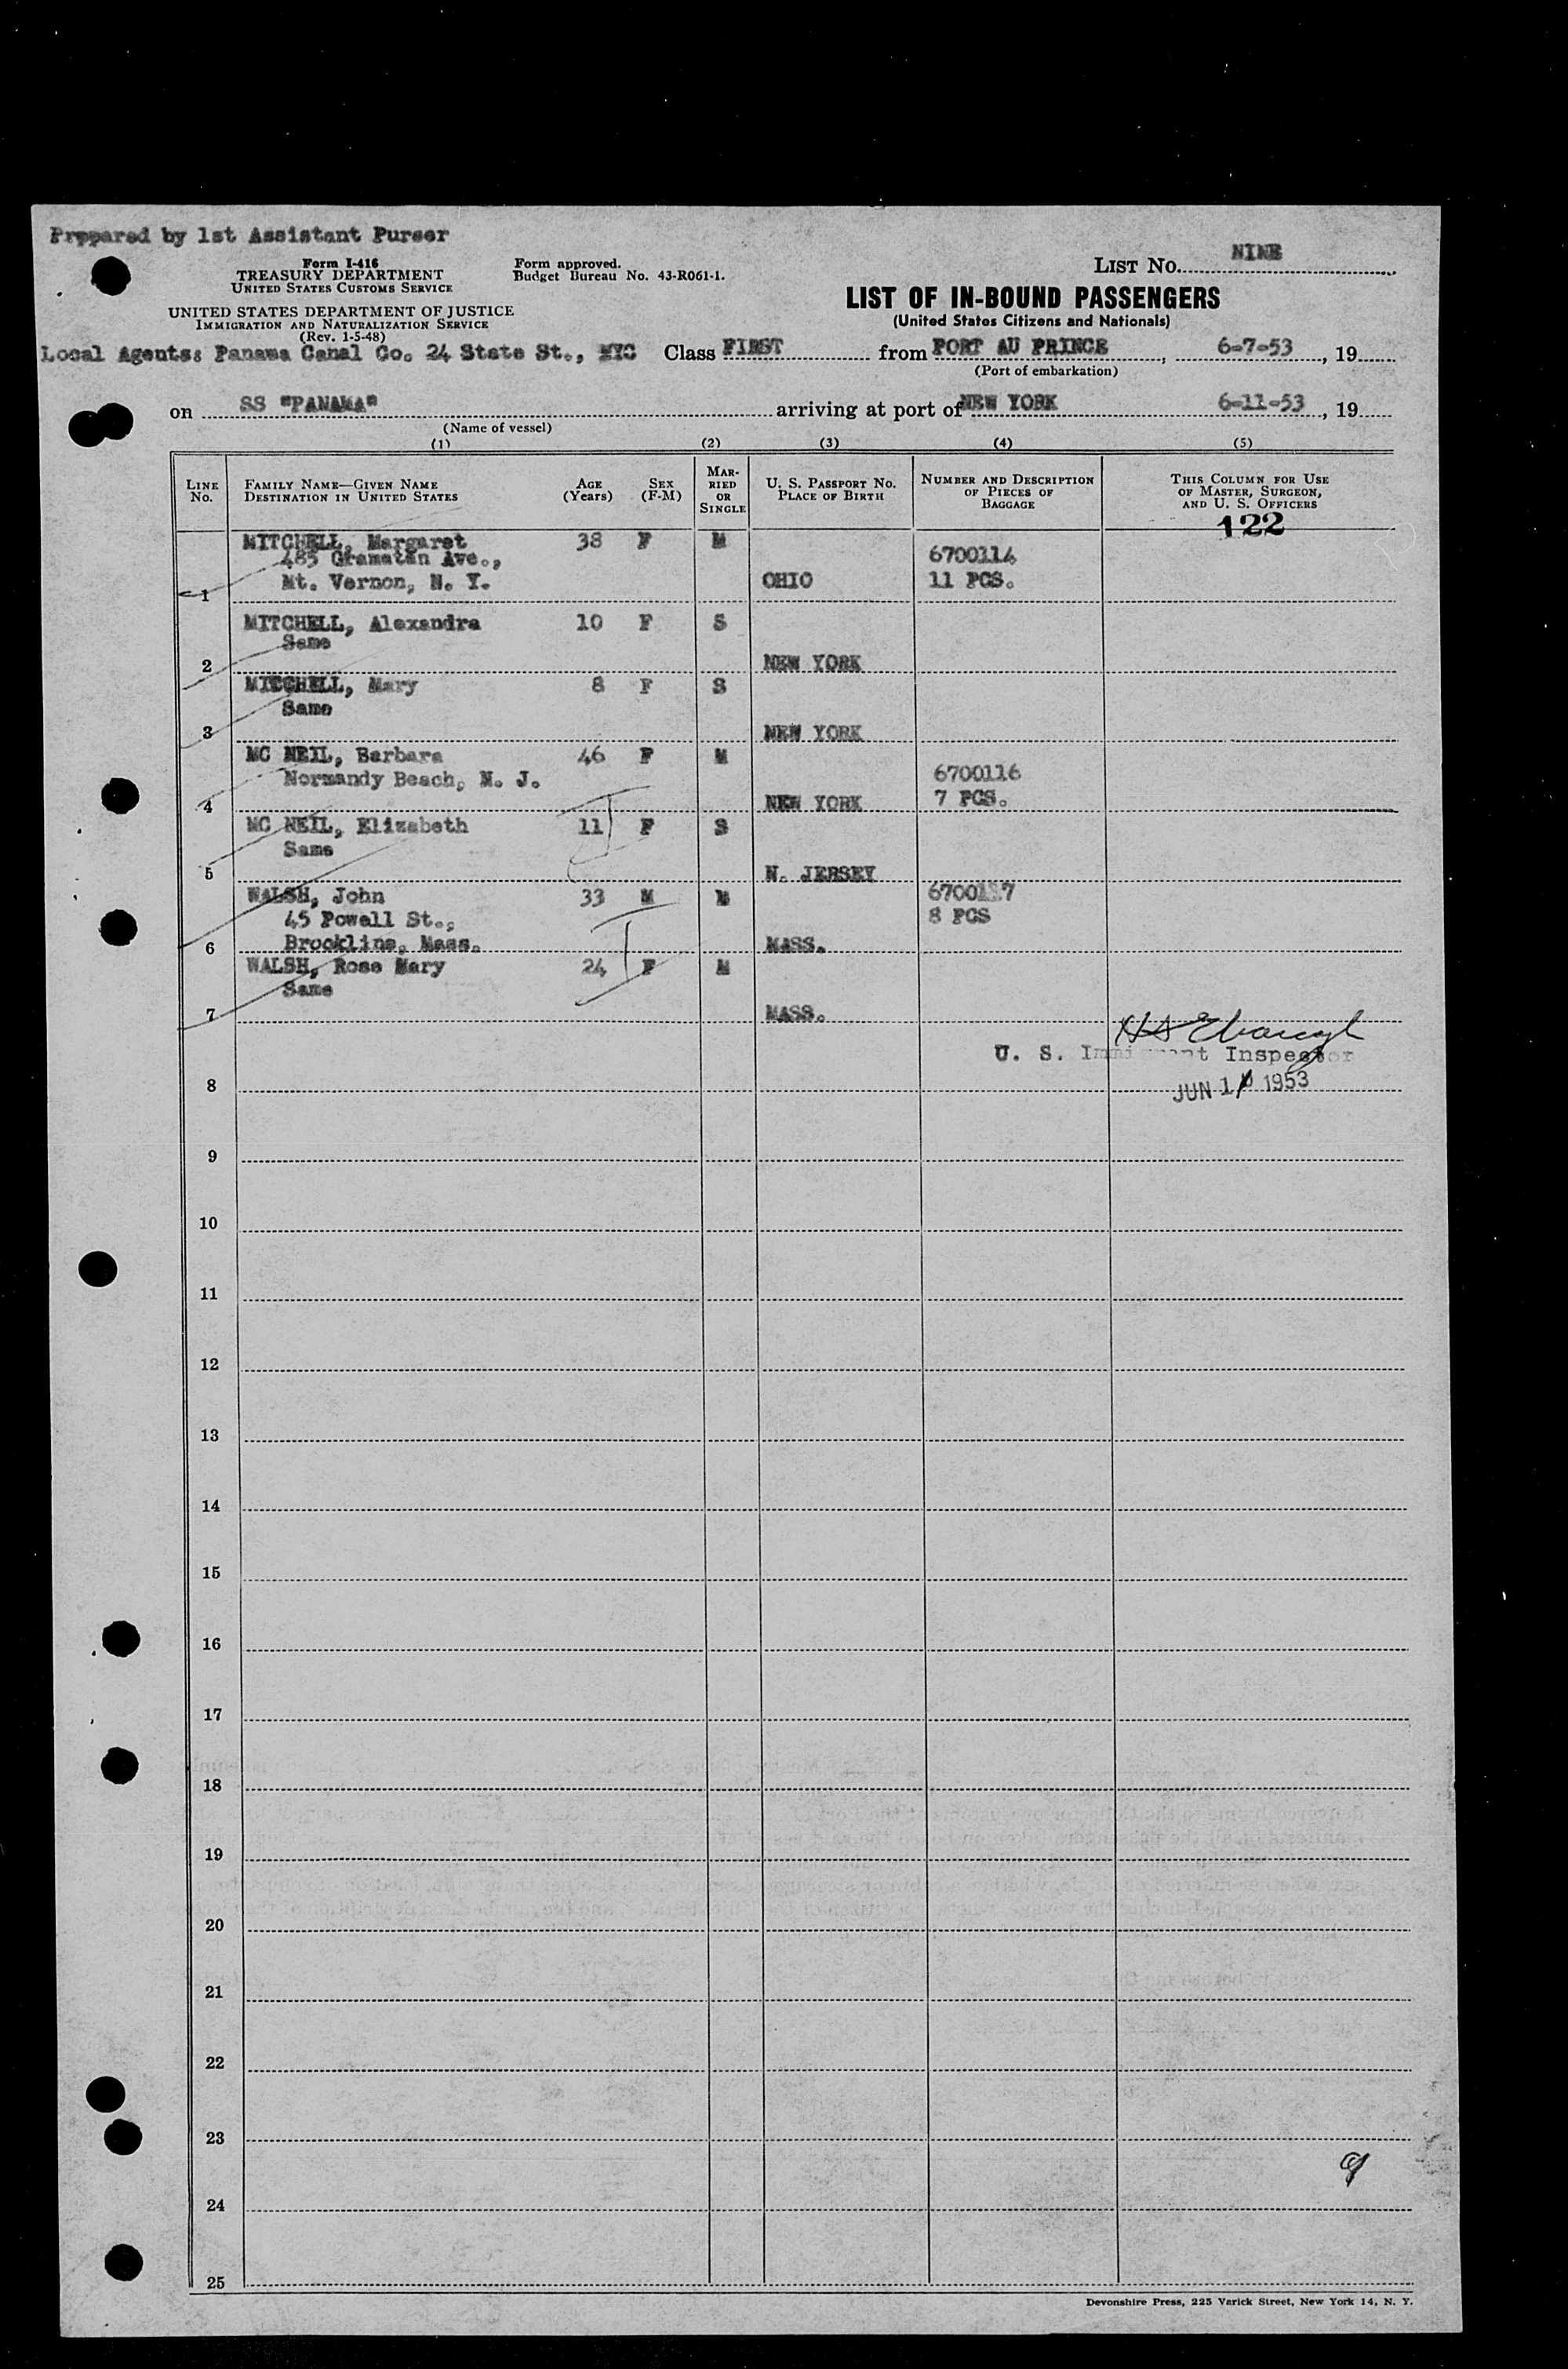 Prepared by 1st Assistant Purser
Form I-416
TREASURY DEPARTMENT
UNITED STATES CUSTOMS SERVICE
Form approved.
Budget Bureau No. 43-R061-1.
LIST NO. NINE
UNITED STATES DEPARTMENT OF JUSTICE
IMMIGRATION AND NATURALIZATION SERVICE
(Rev. 1-5-48)
LIST OF IN-BOUND PASSENGERS
(United States Citizens and Nationals)
Local Agents: Panama Canal Co. 24 State St., NYC Class FIRST from PORT AU PRINCE, 6-7-53, 19
(Port of embarkation)
on SS "PANAMA" arriving at port of NEW YORK 6-11-53, 19
(Name of vessel)
(1) (2) (3) (4) (5)
LINE NO.
FAMILY NAME—GIVEN NAME
DESTINATION IN UNITED STATES
AGE (Years)
SEX (F-M)
MARRIED OR SINGLE
U. S. PASSPORT NO.
PLACE OF BIRTH
NUMBER AND DESCRIPTION OF PIECES OF BAGGAGE
THIS COLUMN FOR USE OF MASTER, SURGEON, AND U. S. OFFICERS
122
MITCHELL, Margaret 38 F M
485 Gramatan Ave., 6700114
1 Mt. Vernon, N. Y. OHIO 11 PCS.
MITCHELL, Alexandra 10 F S
Same
2 NEW YORK
MITCHELL, Mary 8 F S
Same
3 NEW YORK
MC NEIL, Barbara 46 F M
Normandy Beach, N. J. 6700116
4 NEW YORK 7 PCS.
MC NEIL, Elizabeth 11 F S
Same
5 N. JERSEY
WALSH, John 33 M M 6700117
45 Powell St., 8 PCS
6 Brookline, Mass. MASS.
WALSH, Rose Mary 24 F M
Same
7 MASS.
U. S. Immigrant Inspector
8 JUN 1 1953
9
10
11
12
13
14
15
16
17
18
19
20
21
22
23
9
24
25
Devonshire Press, 225 Varick Street, New York 14, N. Y.